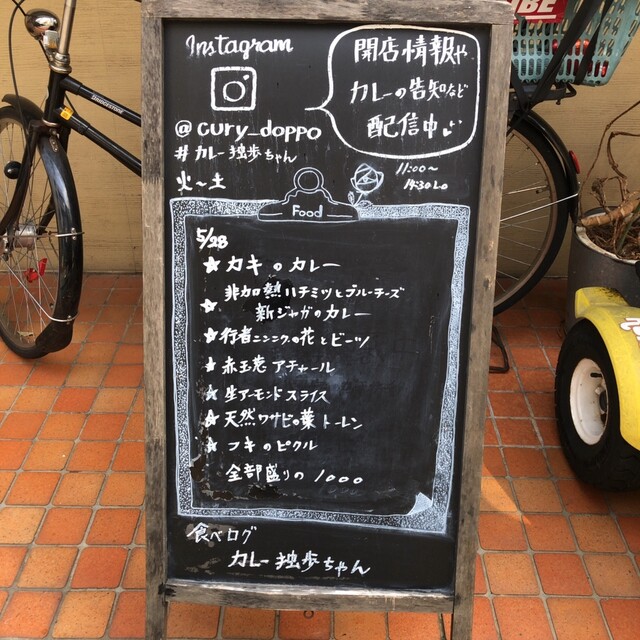 Instagram
開店情報や
カレーの告知など
配信中
@cury_doppo
#カレー独歩ちゃん
11:00〜
14:30LO
火〜土
Food
5/28
★カキのカレー
★非加熱ハチミツとブルーチーズ
新ジャガのカレー
★行者ニンニクの花とビーツ
★赤玉葱アチャール
★生アーモンドスライス
★天然ワサビの葉トーレン
★フキのピクル
全部盛りの1000
食べログ
カレー独歩ちゃん
BRIDGESTONE